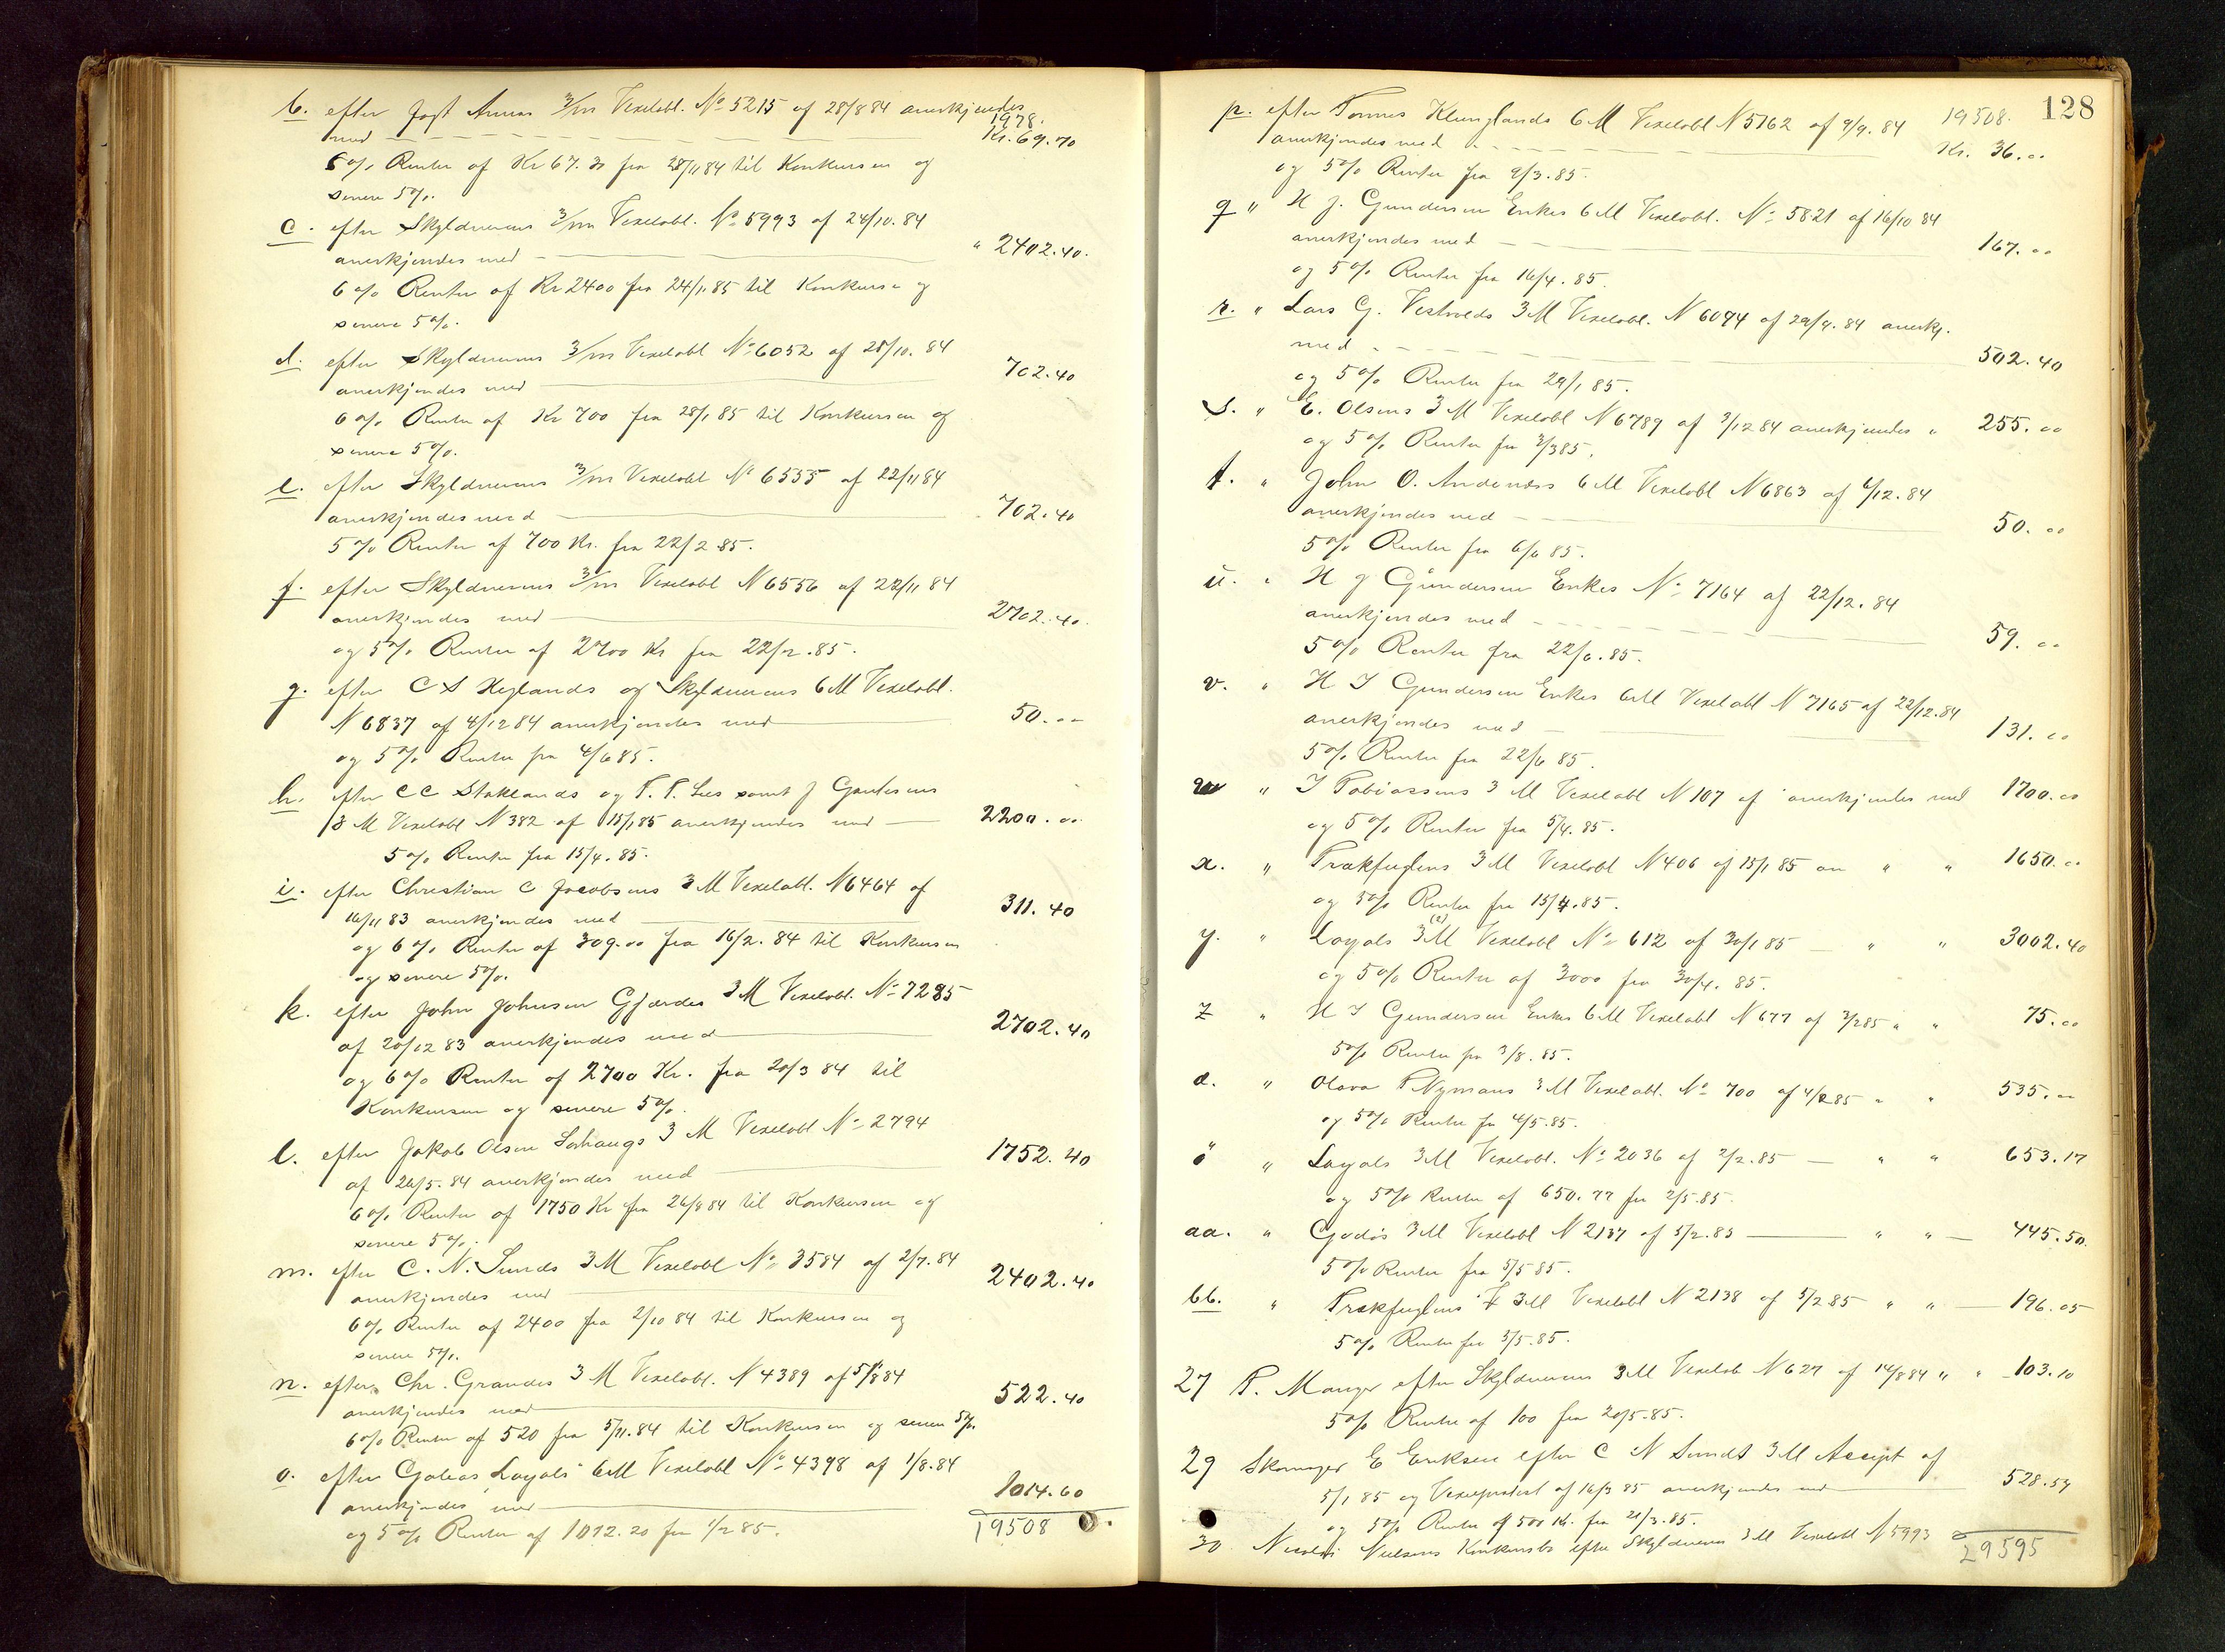 b. efter Jost Annas 3/m Vexelobl. No 5215 af 28/8 84 anerkjendes
1978.
med Kr. 69.70
6% Renter af Kr 67.30 fra 28/11 84 til Konkursen og
senere 5%.
c. efter Skyldnerens 3/m Vexelobl. No 5993 af 24/10.84
anerkjendes med " 2402.40.
6% Renter af Kr 2400 fra 24/1.85 til Konkurse og
senere 5%.
d. efter Skyldnerens 3/m Vexelobl No 6052 af 28/10.84
anerkjendes med 702.40
6% Renter af Kr 700 fra 28/1 85 til Konkursen og
senere 5%.
e. efter Skyldnerens 3/m Vexelobl No 6555 af 22/11 84
anerkjendes med 702.40
5% Renter af 700 Kr. fra 22/2 85.
f. efter Skyldnerens 3/m Vexelobl N 6556 af 22/11 84
anerkjendes med 2702.40.
og 5% Renter af 2700 Kr fra 22/2.85.
g. efter C S Heglands og Skyldnerens 6 M Vexelobl.
N 6837 af 4/12 84 anerkjendes med 50.00
og 5% Renter fra 4/6 85.
h. efter C C Stoklands og T. T. Lies samt J Gautesens
3 M Vexelobl N 382 af 15/1 85 anerkjendes med 2200.00
5% Renter fra 15/4.85.
i. efter Christian C Jacobsens 3 M Vexelobl. N 6464 af
16/11 83 anerkjendes med 311.40
og 6% Renter af 309.00 fra 16/2.84 til Konkursen
og senere 5%.
k. efter John Johnsen Gjerdes 3 M Vexelobl. No 7285
af 20/12 83 anerkjendes med 2702.40
og 6% Renter af 2700 Kr. fra 20/3 84 til
Konkursen og senere 5%.
l. efter Jakob Olsen Sørhaugs 3 M Vexelobl No 2794
af 26/5.84 anerkjendes med 1752.40
6% Renter af 1750 Kr fra 26/8 84 til Konkursen og
senere 5%.
m. efter C. N. Sunds 3 M Vexelobl No 3584 af 2/7.84
anerkjendes med 2402.40
6% Renter af 2400 fra 2/10 84 til Konkursen og
senere 5%.
n. efter Chr. Grandes 3 M Vexelobl. N 4389 af 5/8 84
anerkjendes med 522.40
6% Renter af 520 fra 5/11.84 til Konkursen og senere 5%.
o. efter Gabeas Loyals 6 M Vexelobl No 4398 af 1/8.84
anerkjendes med 1014.60
og 5% Renter af 1012.20 fra 1/2 85. 19508
128
19508.
p. efter Tonnes Klunglands 6 M Vexelobl N 5162 af 9/9.84
anerkjendes med Kr. 36.00
og 5% Renter fra 9/3.85.
q " H J. Gundersen Enkes 6 M Vexelobl. No 5821 af 16/10 84
anerkjendes med 167.00
og 5% Renter fra 16/4.85.
r. " Lars G. Vestvolds 3 M Vexelobl. N 6094 af 29/9.84 anerkj.
med 502.40
og 5% Renter fra 29/1 85.
s. " E. Olsens 3 M Vexelobl N 6789 af 3/12 84 anerkjendes " 255.00
og 5% Renter fra 3/3 85.
t. " John O. Andenæss 6 M Vexelobl N 6863 af 6/12.84
anerkjendes med 50.00
5% Renter fra 6/6 85.
u. " H J Gundersen Enkes No 7164 af 22/12.84
anerkjendes med 59.00
5% Renter fra 22/6.85.
v. " H J Gundersen Enkes 6 M Vexelobl N 7165 af 22/12.84
anerkjendes med 131.00
5% Renter fra 22/6 85.
w " J Tobiassens 3 M Vexelobl N 107 af anerkjendes med 1700.00
og 5% Renter fra 5/4.85.
x. " Trækfuglens 3 M Vexelobl N 406 af 15/1 85 an " " 1650.00
og 5% Renter fra 15/4.85.
y. " Loyals 3 M (2) Vexelobl No 612 af 30/1 85 " " 3002.40
og 5% Renter af 3000 fra 30/4.85.
z " H J Gundersen Enkes 6 M Vexelobl N 677 af 3/2 85 " " 75.00
5% Renter fra 3/8.85.
æ. " Olava T Nymans 3 M Vexelobl. No 700 af 4/2 85 " " 535.00
og 5% Renter fra 4/5.85.
ö " Loyals 3 M Vexelobl. No 2036 af 2/2.85 " " 653.17
og 5% Renter af 650.77 fra 2/5.85.
aa. " Godøs 3 M Vexelobl N 2137 af 5/2.85 " " 445.50.
5% Renter fra 5/5 85.
bb. " Trækfuglens 3 M Vexelobl N 2138 af 5/2 85 " " 196.05
5% Renter fra 5/5.85.
27 T. Manger efter Skyldnerens 3 M Vexelob N 627 af 14/8 84 " " 103.10
5% Renter af 100 fra 20/5.85.
29 Skomager E Eriksen efter C N Sundt 3 M Accept af
5/1 85 og Vexelprotest af 16/3 85 anerkjendes med 528.54
og 5% Renter af 500 Kr. fra 21/3.85.
30 Nicolai Nielsens Konkursbo efter Skyldnerens 3 M Vexelobl N 5993 29595